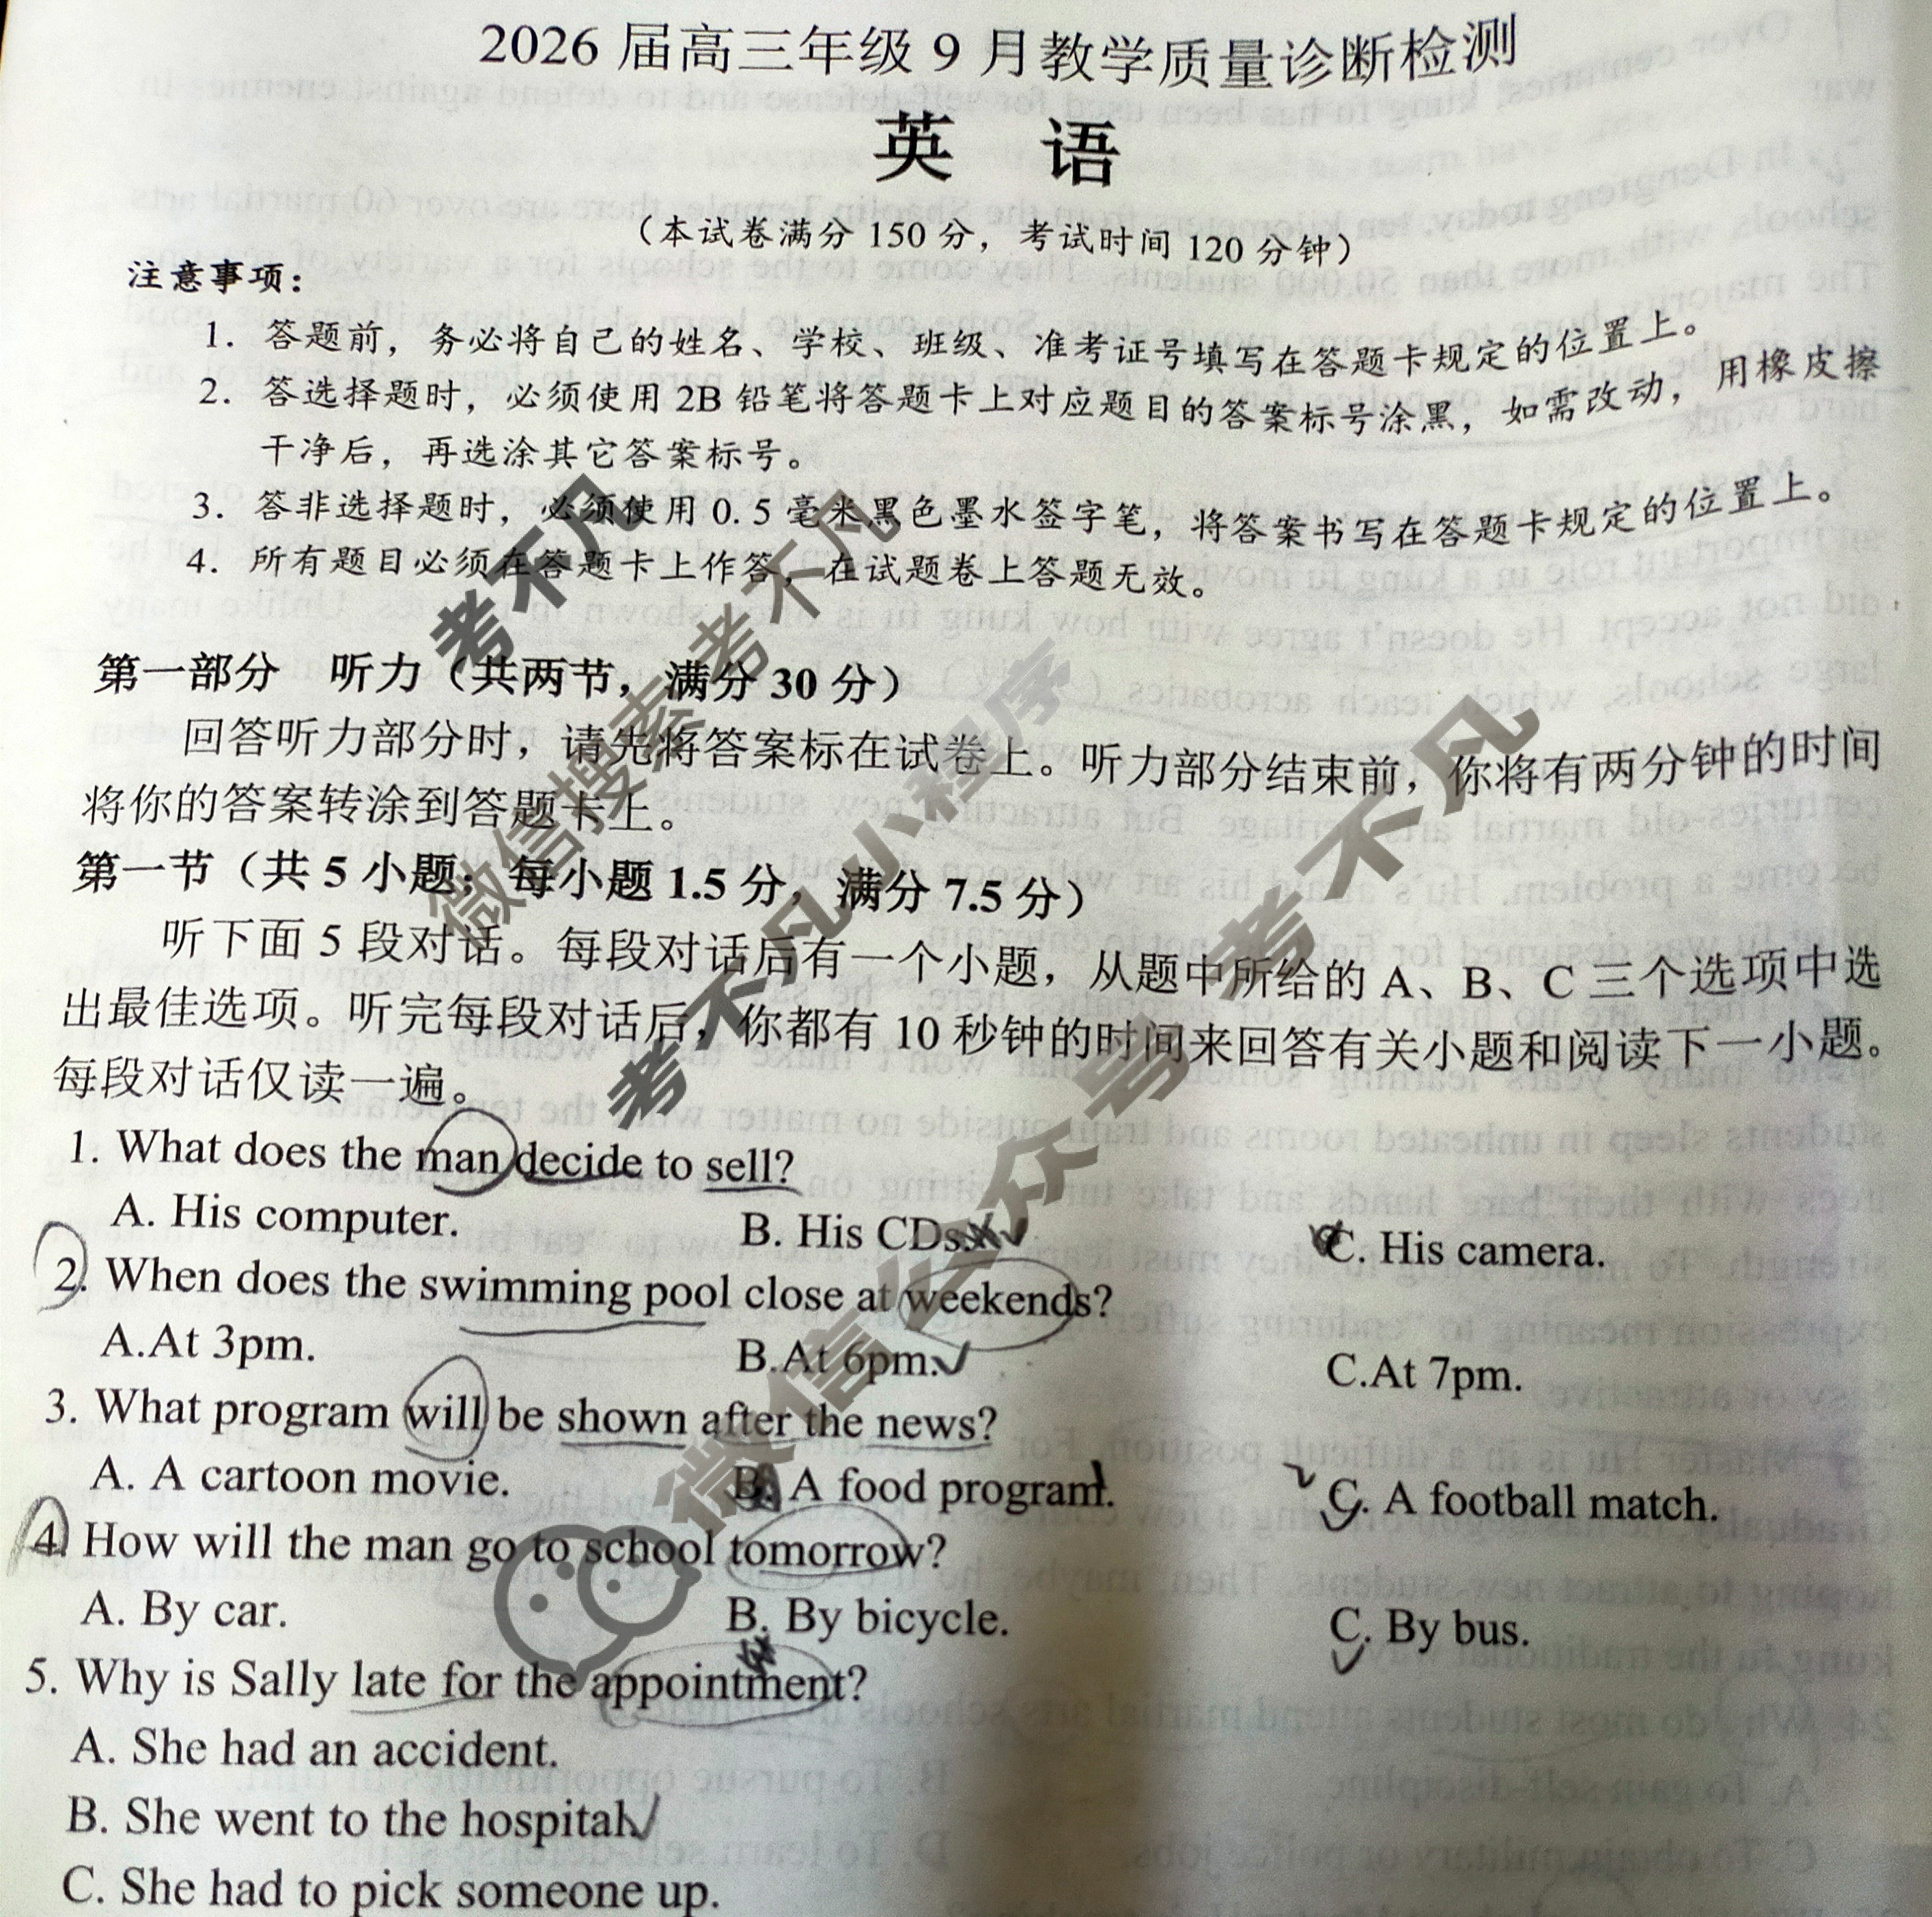 2026 届高三年级 9 月教学质量诊断检测
英 语
（本试卷满分 150 分，考试时间 120 分钟）
注意事项：
1. 答题前，务必将自己的姓名、学校、班级、准考证号填写在答题卡规定的位置上。
2. 答选择题时，必须使用 2B 铅笔将答题卡上对应题目的答案标号涂黑，如需改动，用橡皮擦
干净后，再选涂其它答案标号。
3. 答非选择题时，必须使用 0.5 毫米黑色墨水签字笔，将答案书写在答题卡规定的位置上。
4. 所有题目必须在答题卡上作答，在试题卷上答题无效。
第一部分 听力（共两节，满分 30 分）
回答听力部分时，请先将答案标在试卷上。听力部分结束前，你将有两分钟的时间
将你的答案转涂到答题卡上。
第一节（共 5 小题；每小题 1.5 分，满分 7.5 分）
听下面 5 段对话。每段对话后有一个小题，从题中所给的 A、B、C 三个选项中选
出最佳选项。听完每段对话后，你都有 10 秒钟的时间来回答有关小题和阅读下一小题。
每段对话仅读一遍。
1. What does the man decide to sell?
A. His computer. B. His CDs. C. His camera.
2. When does the swimming pool close at weekends?
A.At 3pm. B.At 6pm. C.At 7pm.
3. What program will be shown after the news?
A. A cartoon movie. B. A food program. C. A football match.
4. How will the man go to school tomorrow?
A. By car. B. By bicycle. C. By bus.
5. Why is Sally late for the appointment?
A. She had an accident.
B. She went to the hospital.
C. She had to pick someone up.
考不凡
微信搜索 考不凡
考不凡小程序
微信公众号 考不凡